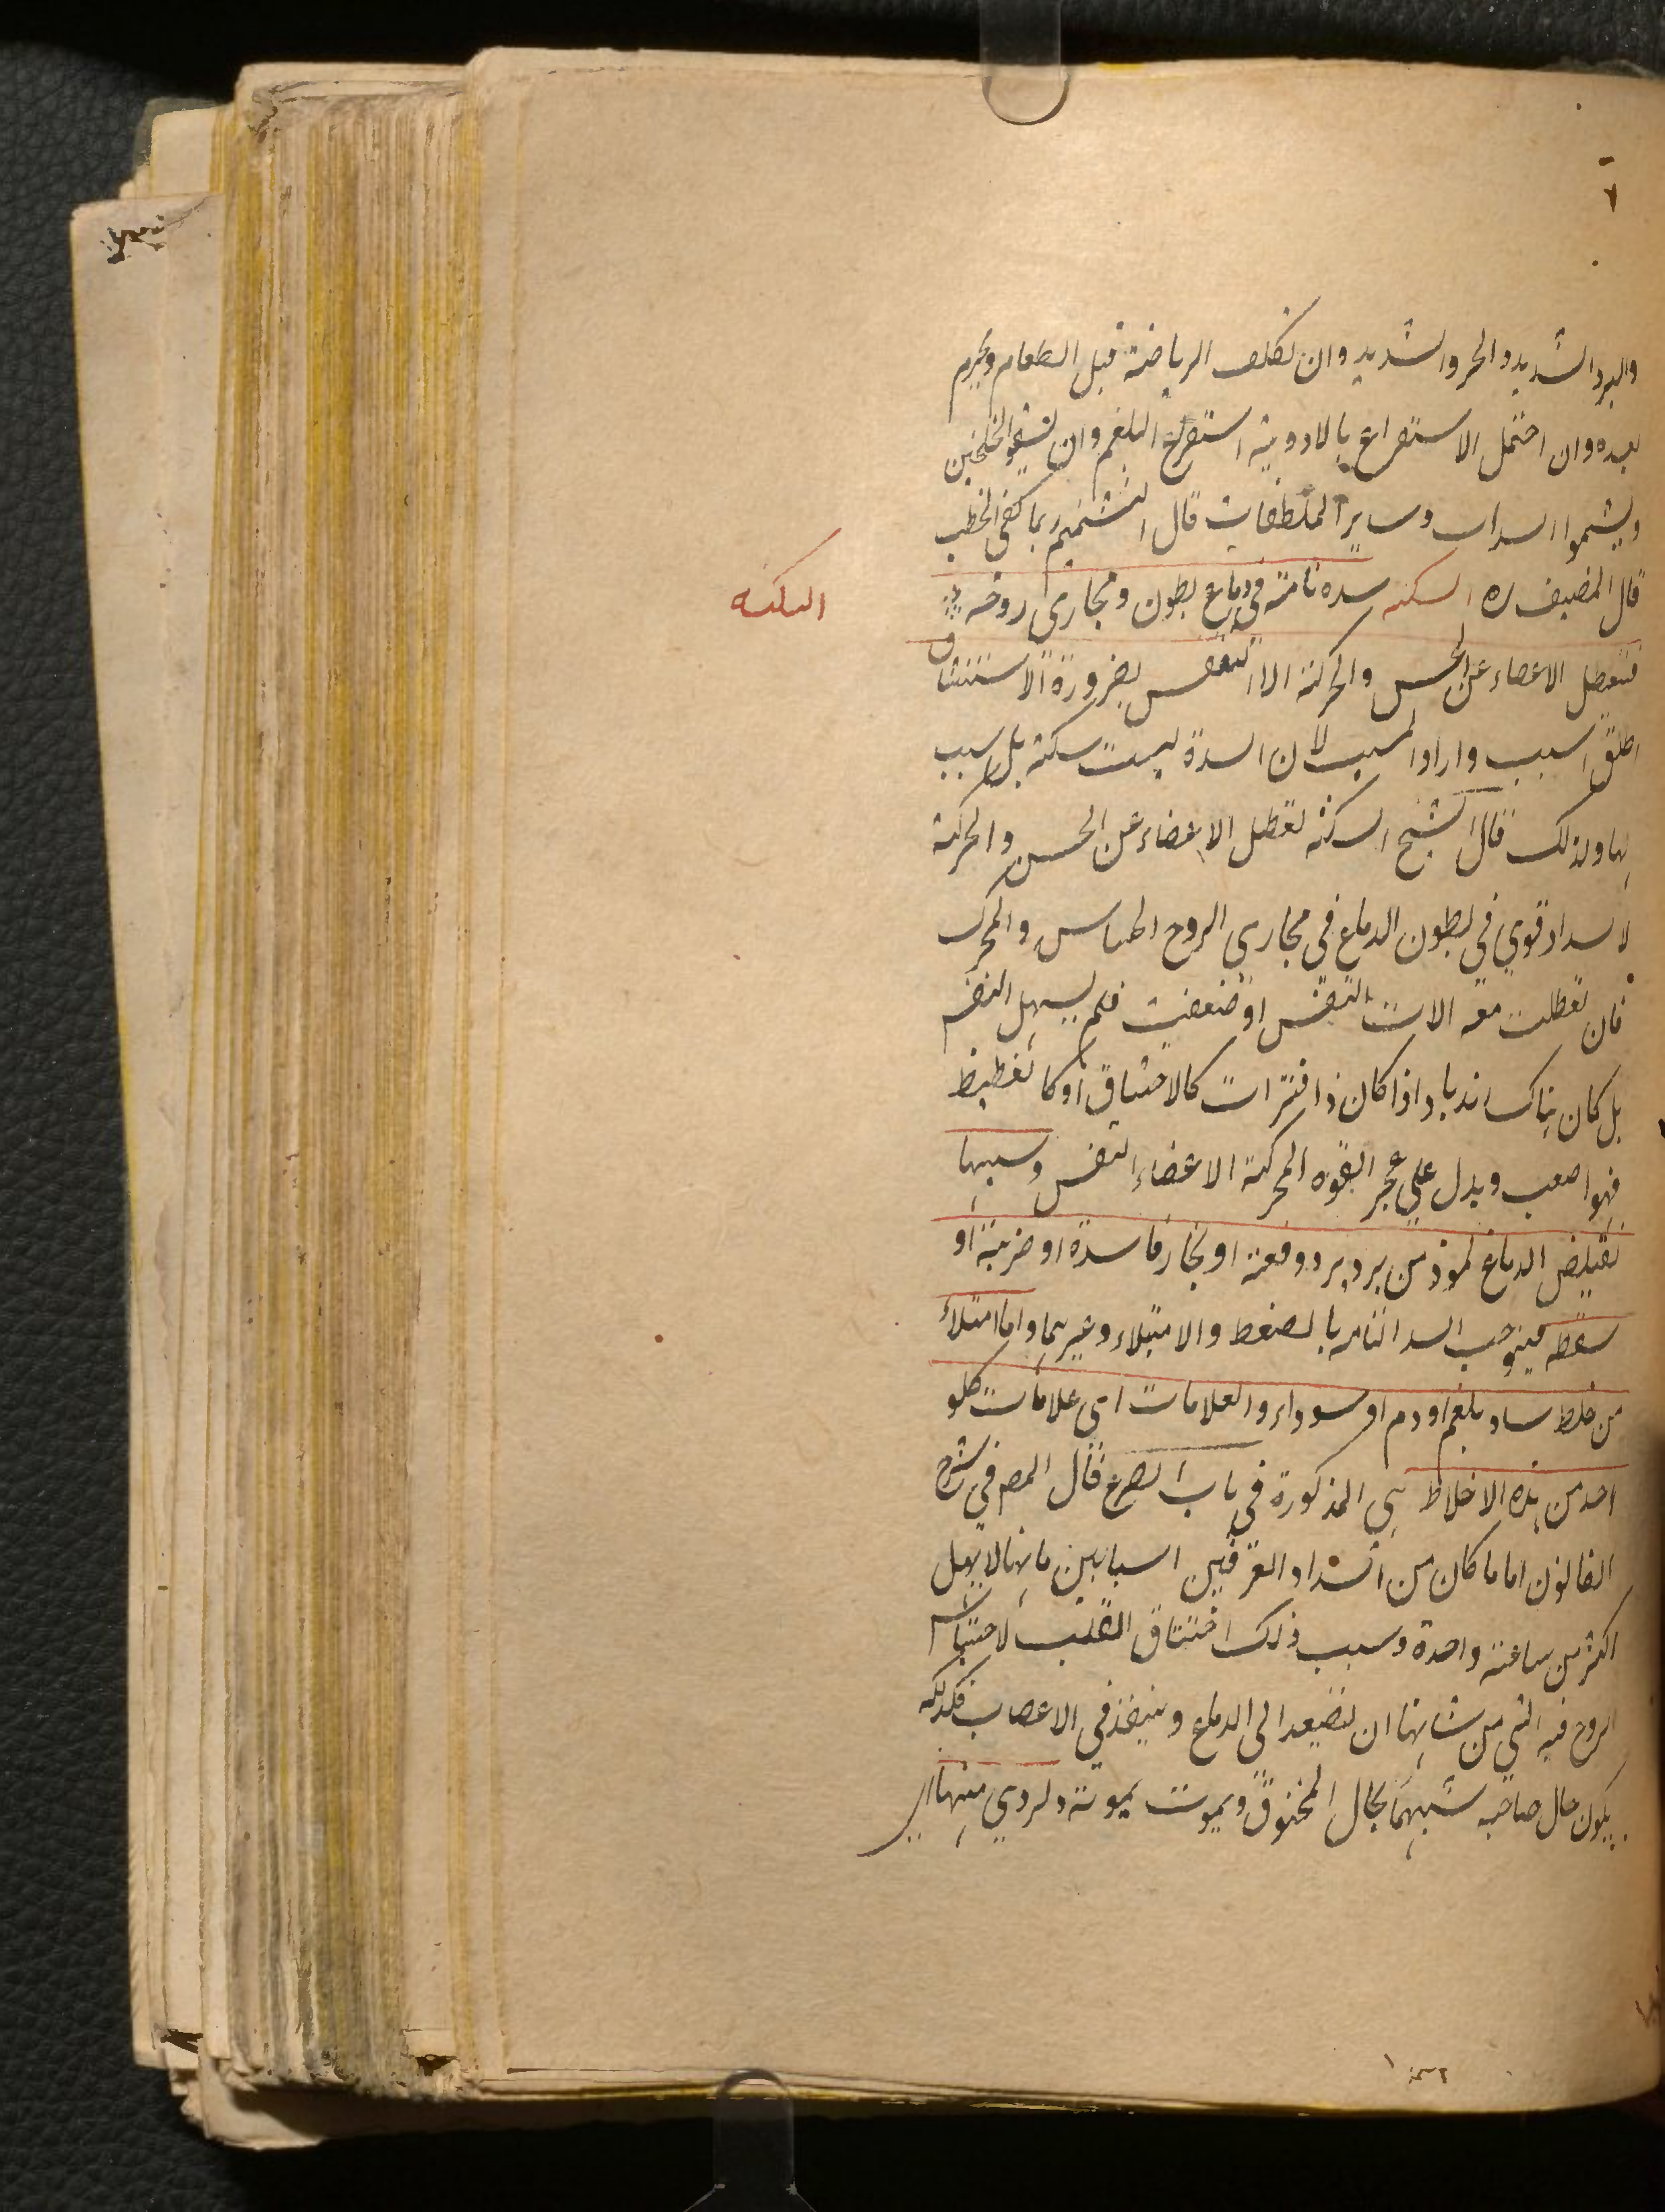 والبرد الشديد والحر والشديد وان تكلف الرياضة قبل الطعام ويحرم
بعده وان احتمل الاستفراغ بالادوية استفرغ البلغم وان
ويشموا السداب وساير الملطفات قال
قال المصنف ره السكته سدة تامة في دماغ بطون ومجاري روحه
السكته
فتعطل الاعضاء عن الحس والحركة الا التنفس لضرورة الاستنشاق
اطلق السبب واراد المسبب لان السدة ليست سكتة بل سبب
لها ولذلك قال الشيخ السكتة تعطل الاعضاء عن الحس والحركة
لانسداد قوي في بطون الدماغ في مجاري الروح الحساس والمحرك
فان تعطلت معه الات التنفس او ضعفت فلم يسهل النفس
بل كان هناك ازباد اذا كان ذا فترات كالاختناق او كالغطيط
فهو اصعب ويدل علي عجز القوه المحركة الاعضاء النفس وسببها
تقبض الدماغ لموذ من برد او بخار فاسدة او ضربة او
سقطه فيوجب السد التامه بالضغط والامتلاء وغيرهما واما امتلاء
من خلط ساد بلغم او دم او سوداء والعلامات اي علامات
احد من هذه الاخلاط هي المذكورة في باب الصرع قال المص في شرح
القانون اما ما كان من انسداد العرقين السباتيين فانها لا يمهل
اكثر من ساعة واحدة وسبب ذلك اختناق القلب لاحتباس
الروح فيه التي من شانها ان تتصعد الى الدماغ وينفذ في الاعصاب فلذلك
يكون حال صاحبه شبيها بحال المخنوق ويموت بموته والردي منها